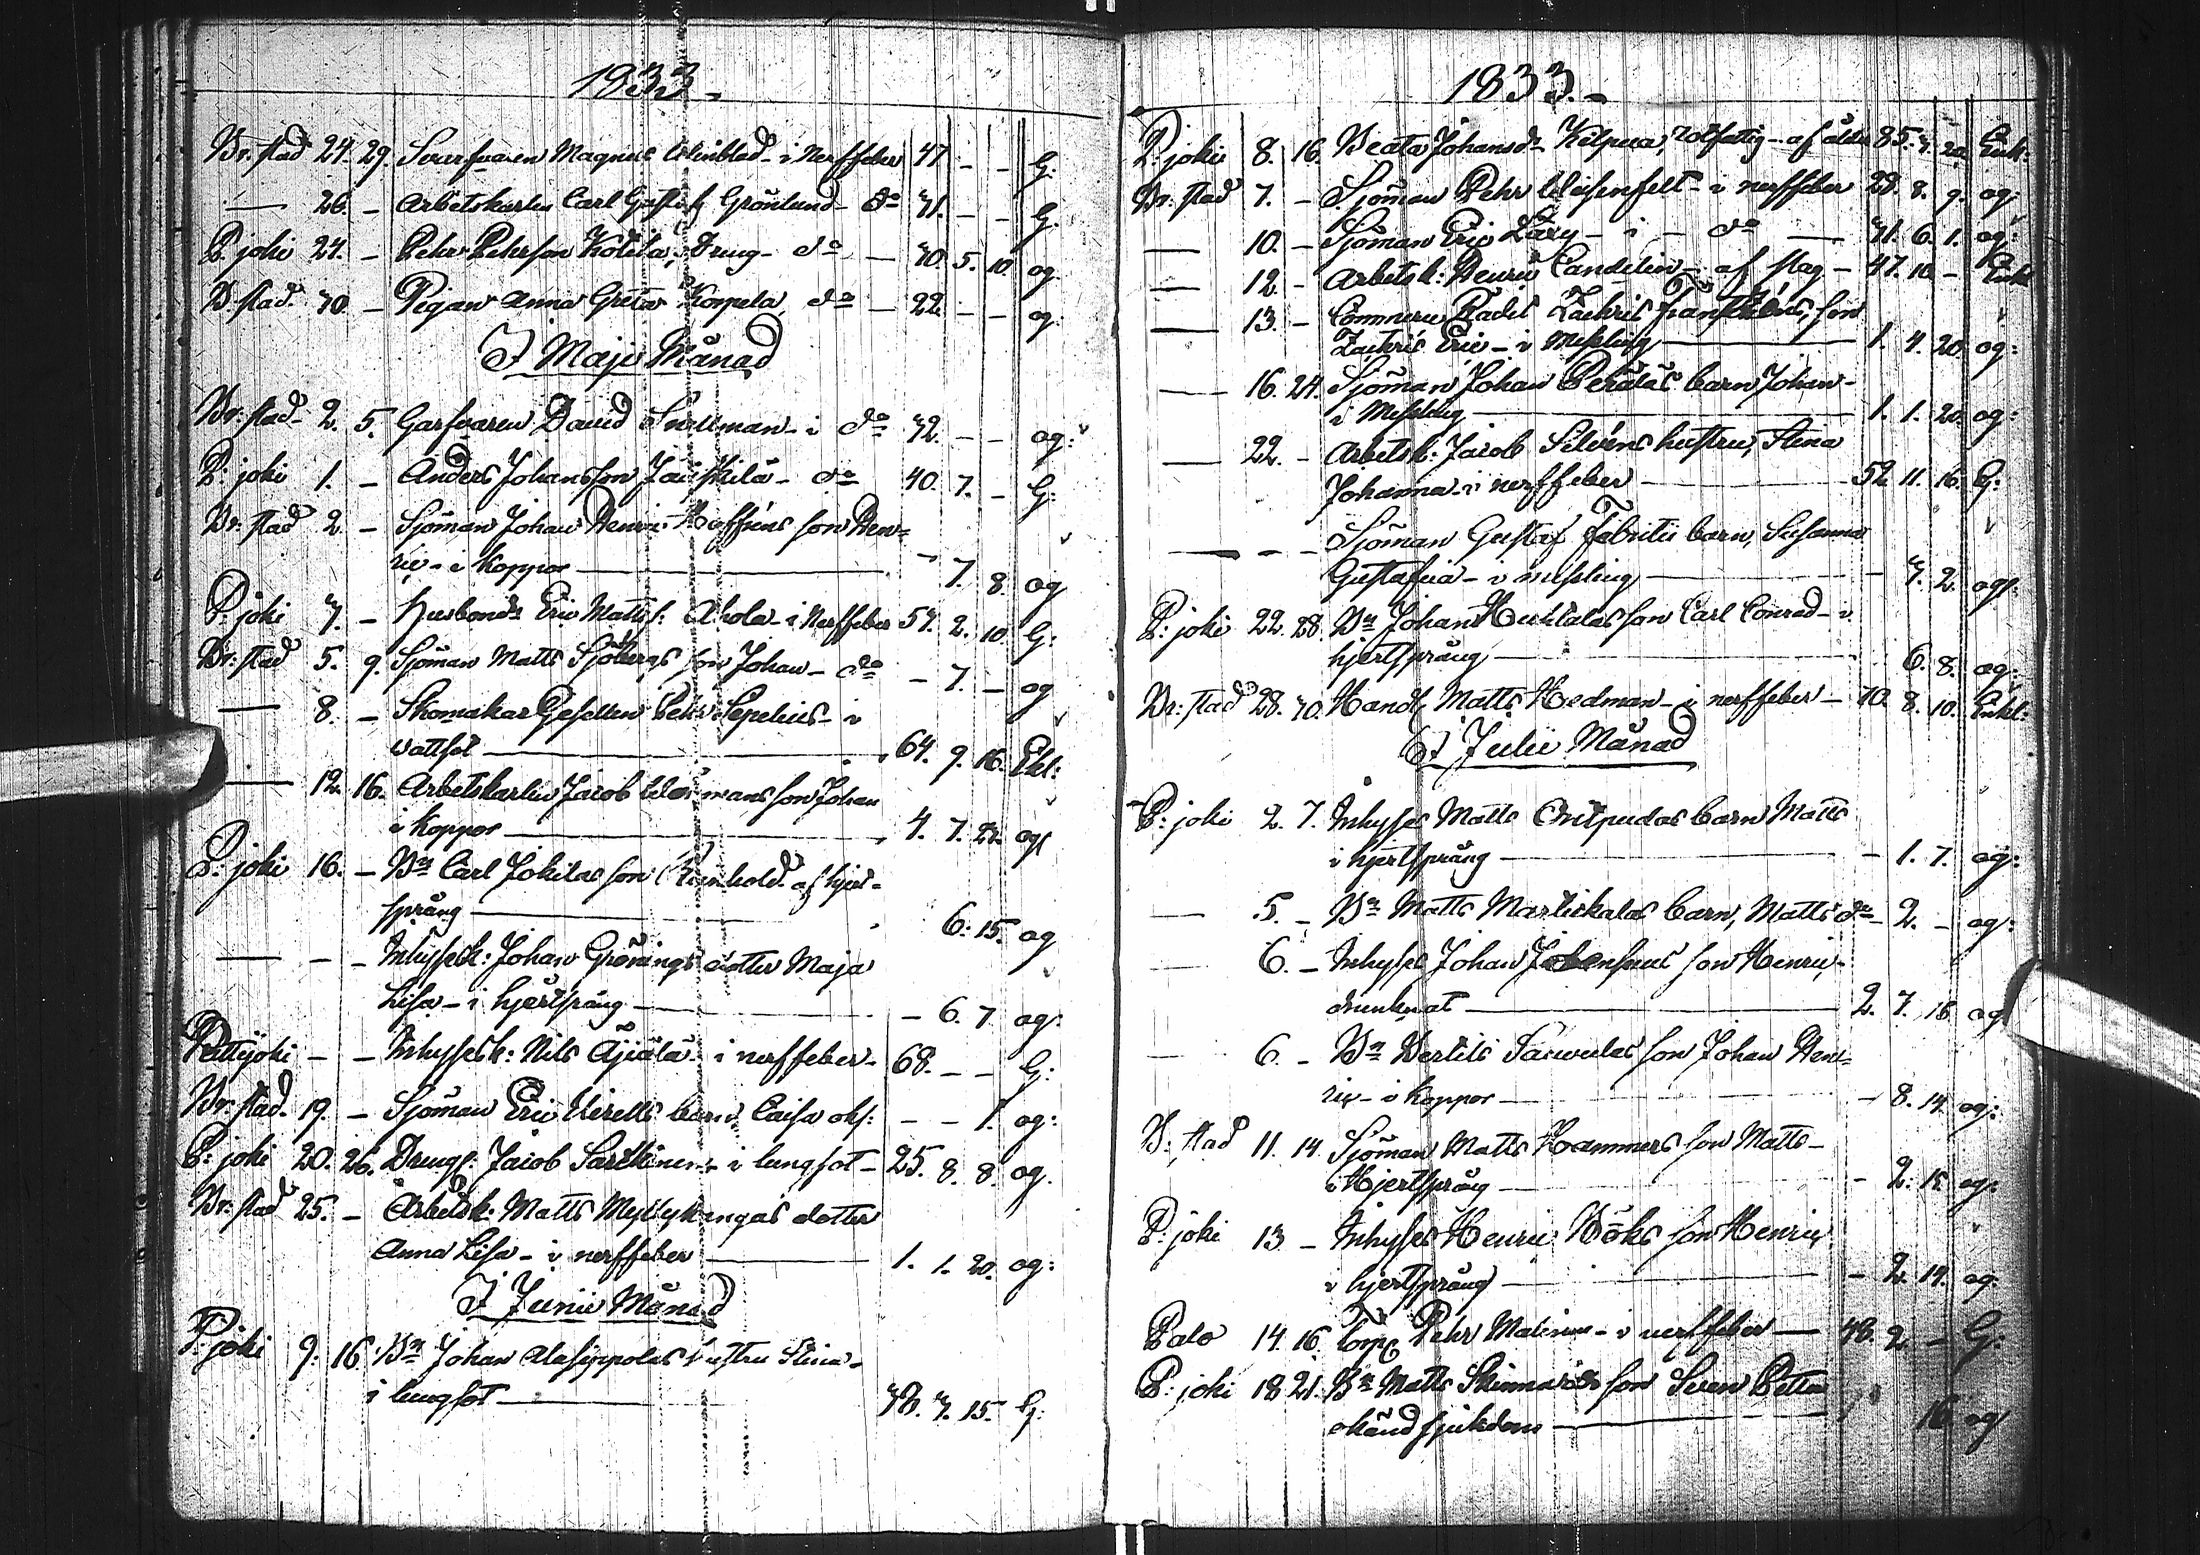 1833.
Br. stad 24. 29. Svarfvaren Magnus Weinblad - i Nerffeber 47 - - G:
— 26. - Arbetskarlen Carl Gustaf Grönlund - do 41. - - G.
P. joki 24. - Pehr Pehrson Kotila, Dreng - do — 40. 5. 10. og
B. stad. 30. - Pigan Anna Greta Korpela, do — 22. - - og:
I Maji Månad
Br: stad - 2. 5. Garfvaren David Snellman - i do 42. - - og:
P. joki 1. - Anders Johansson - do 40. 7. - G:
Br. stad 2. - Sjöman Johan Henric son Hen=
ric - i Koppor — - 7. 8. og
P: joki 7. - Husbond: Eric Matts: Ahola - i Nerffeber 57. 2. 10 G:
Br: stad 5. 9. Sjöman Matts Sjöbergs son Johan - do - 7. - og
— 8. - Skomakar Gesellen Pehr Sepelius - i
vattsot — 64. 9. 16. Ekl:
— 12. 16. Arbetskarlen Jacob son Johan
i Koppor — 4. 7. 22. og
P: joki 16. - Bn Carl Jokilas son Reinhold af hjert-
språng — 6. 15. og
— - - Inhysesk: Johan Grönings dotter Maja
Lisa - i hjertsprång — - 6. 7 og:
Pattijoki - - Inhysesk: Nils Äijälä - i nerffeber - 68. - - G:
Br: stad - 19. - Sjöman Eric barn, Caisa oks: - - 1. og:
P: joki 20. 26. Drengs: Jacob - i lungsot - 25. 8. 8. og.
Br: stad 25. - Arbetsk: Matts Myllykangas dotter
Anna Lisa - i nerffeber — 1. 1. 20. og:
I Junii Månad
P: joki 9: 16. Bn Johan Alasippolas hustru Stina -
i lungsot — 38. 4. 15. G:
1833. -
P: joki 8. 16. Beata Johansdr Kilpua, rotfattig - af ålder 85. 3. 20. Enk:
Br. stad 7. - Sjöman Pehr Weisenfelt - i nerffeber 28. 8. 9. og
— 10. - Sjöman Eric - i - do — 41. 6. 1. og:
— 12. - Arbetsk: Henric Candelin - af slag - 47. 10 - Enkl
— 13. - Commerce Radet Zachris Franténs, son
Zachris Eric - i Messling — 1. 4. 20. og:
— 16. 24. Sjöman Johan Peräläs barn Johan -
i Messling — 1. 1. 20. og:
— 22. - Arbetsk: Jacob Silvéns hustru, Stina
Johanna - i nerffeber — 52 11. 16. G:
— - - Sjöman Gustaf Fabritii barn, Susanna
Gustafva - i messling — - 7. 2. og.
P: joki 22. 28. Bn Johan son Carl Conrad - i
hjertsprång — 6. 8. og:
Br: stad 28. 30. Handl. Matts Hedman - i nerffeber - 40. 8. 10. Enkl:
I Julii Månad
P: joki 2. 7. Inhyses Matts barn Matts
i hjertsprång — - 1. 7. og:
— 5. - Bn Matts Martikalas barn, Matts do - 2. - og:
— 6. - Inhyses Johan son Henric -
drunknat — 2. 7. 18 og
— 6. - Bn Bertils son Johan Hen=
ric - i Koppor — - 8. 14. og:
B: stad 11. 14 Sjöman Matts Hammers son Matts -
i Hjertsprång — - 2. 15. og:
P: joki 13 - Inhyses Henric Höks son Henric
i hjertsprång — - 2. 14. og.
Palo 14. 16. Torp: Pehr Malinen - i nerffeber — 48. 2. - G:
P: joki 18. 21. Bn Matts son Sven Petter
okänd sjukdom — 16 og